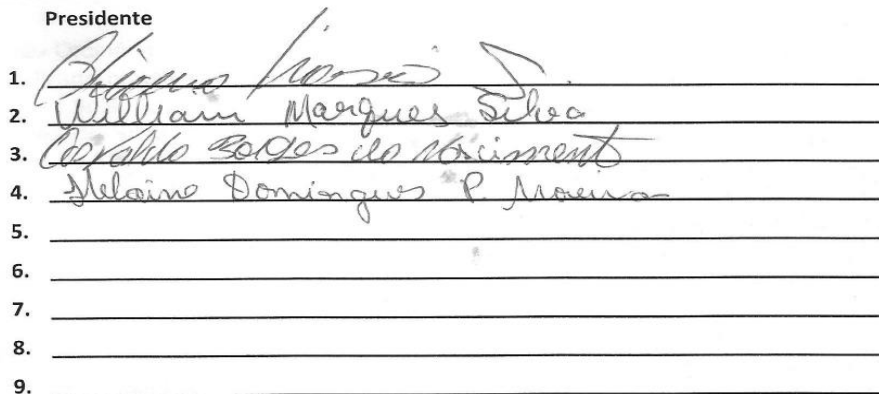 Presidente
1.
2. William Marques Silva
3. Borges do Nascimento
4. Domingues P. Moreira
5.
6.
7.
8.
9.